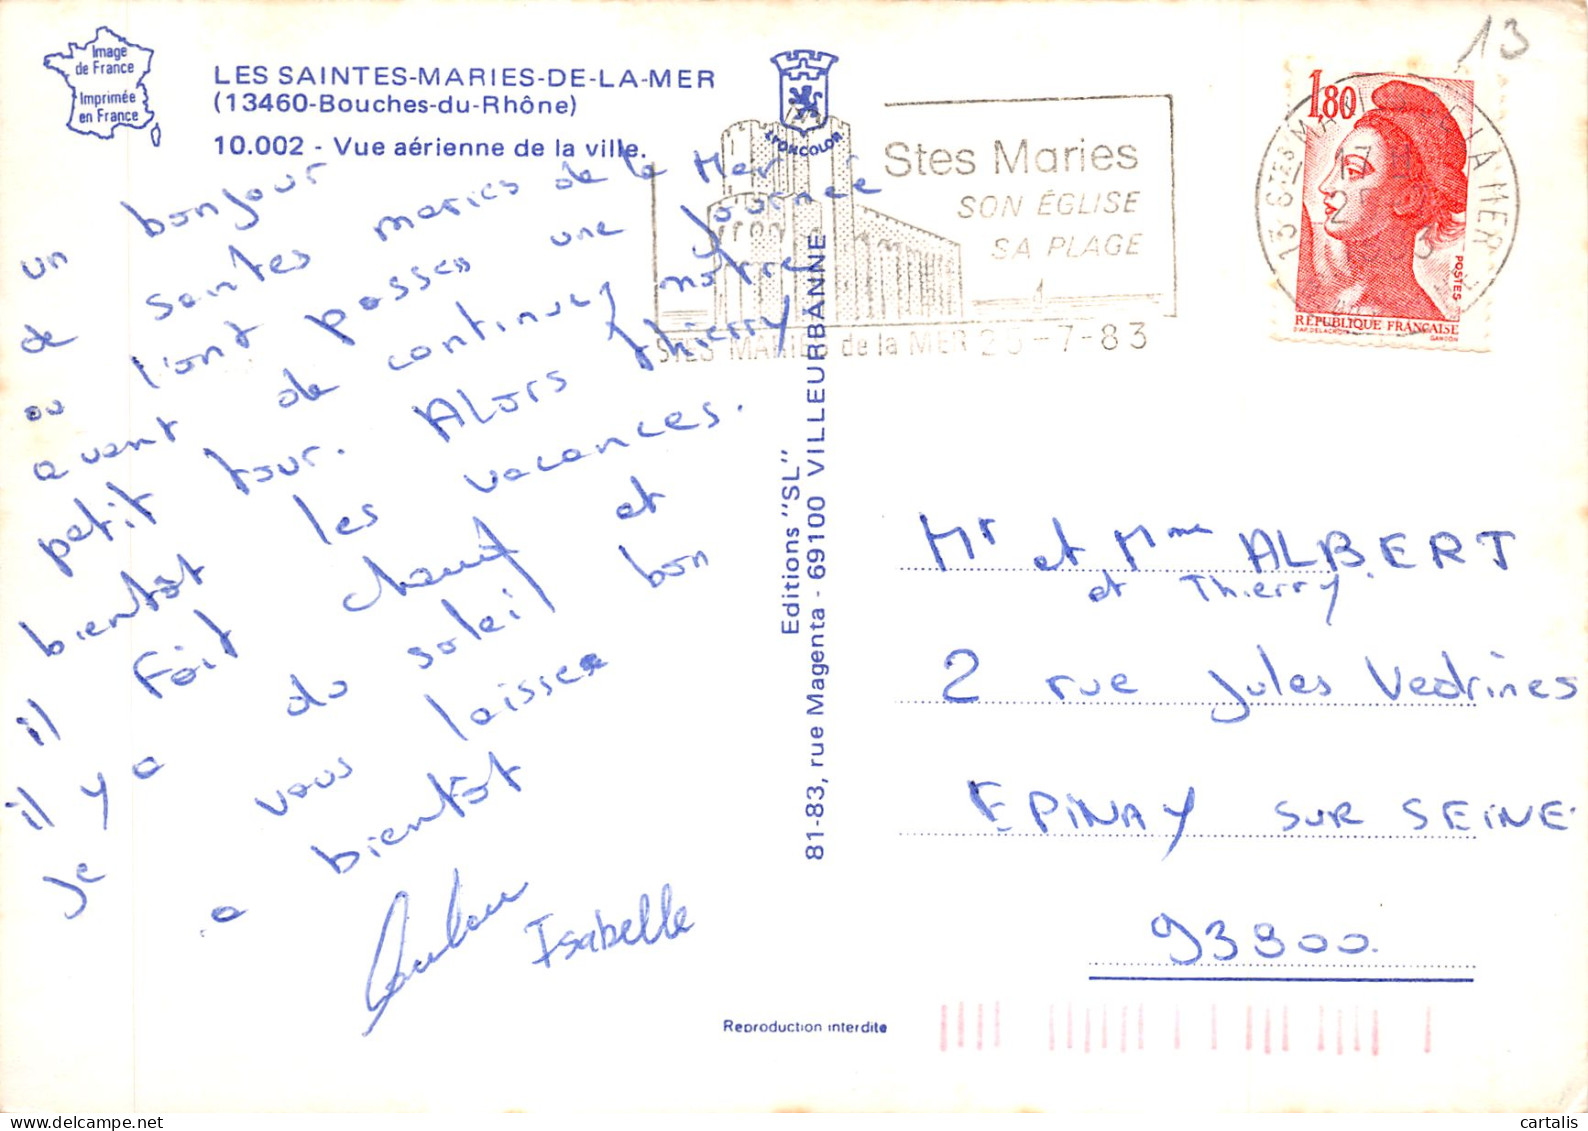 Image
de France
Imprimée
en France
LES SAINTES-MARIES-DE-LA-MER
(13460-Bouches-du-Rhône)
10.002 - Vue aérienne de la ville.
LYONCOLOR
13
1,80
POSTES
RÉPUBLIQUE FRANÇAISE
GANDON
Stes Maries
SON ÉGLISE
SA PLAGE
STES MARIES de la MER 25-7-83
un bonjour
de Saintes maries de la Mer
ou l'ont passes une Journée
avant de continuez notre
petit tour. Alors Thierry
bientôt les vacances.
il fait chaud et
il y a du soleil bon
Je vous laisse
a bientôt
Isabelle
Editions "SL"
81-83, rue Magenta - 69100 VILLEURBANNE
Mr et Mme ALBERT
et Thierry.
2 rue Jules Vedrines
EPINAY SUR SEINE.
93800.
Reproduction interdite
cartalis